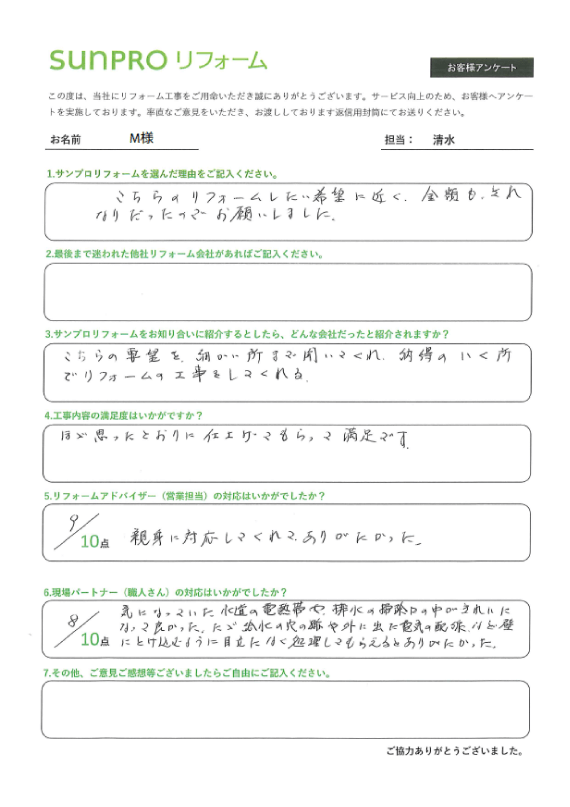 SUNPRO リフォーム
お客様アンケート
この度は、当社にリフォーム工事をご用命いただき誠にありがとうございます。サービス向上のため、お客様へアンケー
トを実施しております。率直なご意見をいただき、お渡ししております返信用封筒にてお送りください。
お名前 M様 担当： 清水
1.サンプロリフォームを選んだ理由をご記入ください。
こちらのリフォームしたい希望に近く、金額も、それ
なりだったのでお願いしました。
2.最後まで迷われた他社リフォーム会社があればご記入ください。
3.サンプロリフォームをお知り合いに紹介するとしたら、どんな会社だったと紹介されますか？
こちらの要望を、細かい所まで聞いてくれ、納得のいく所
でリフォームの工事をしてくれる。
4.工事内容の満足度はいかがですか？
ほぼ思ったとおりに仕上げてもらって満足です。
5.リフォームアドバイザー（営業担当）の対応はいかがでしたか？
9/10点 親身に対応してくれて、ありがたかった。
6.現場パートナー（職人さん）の対応はいかがでしたか？
気になっていた水道の電熱帯や、排水の掃除口の中がきれいに
8/10点 なって良かった。ただ給水の穴の跡や外に出た電気の配線など壁
にとけ込むように目立たなく処理してもらえるとありがたかった。
7.その他、ご意見ご感想等ございましたらご自由にご記入ください。
ご協力ありがとうございました。